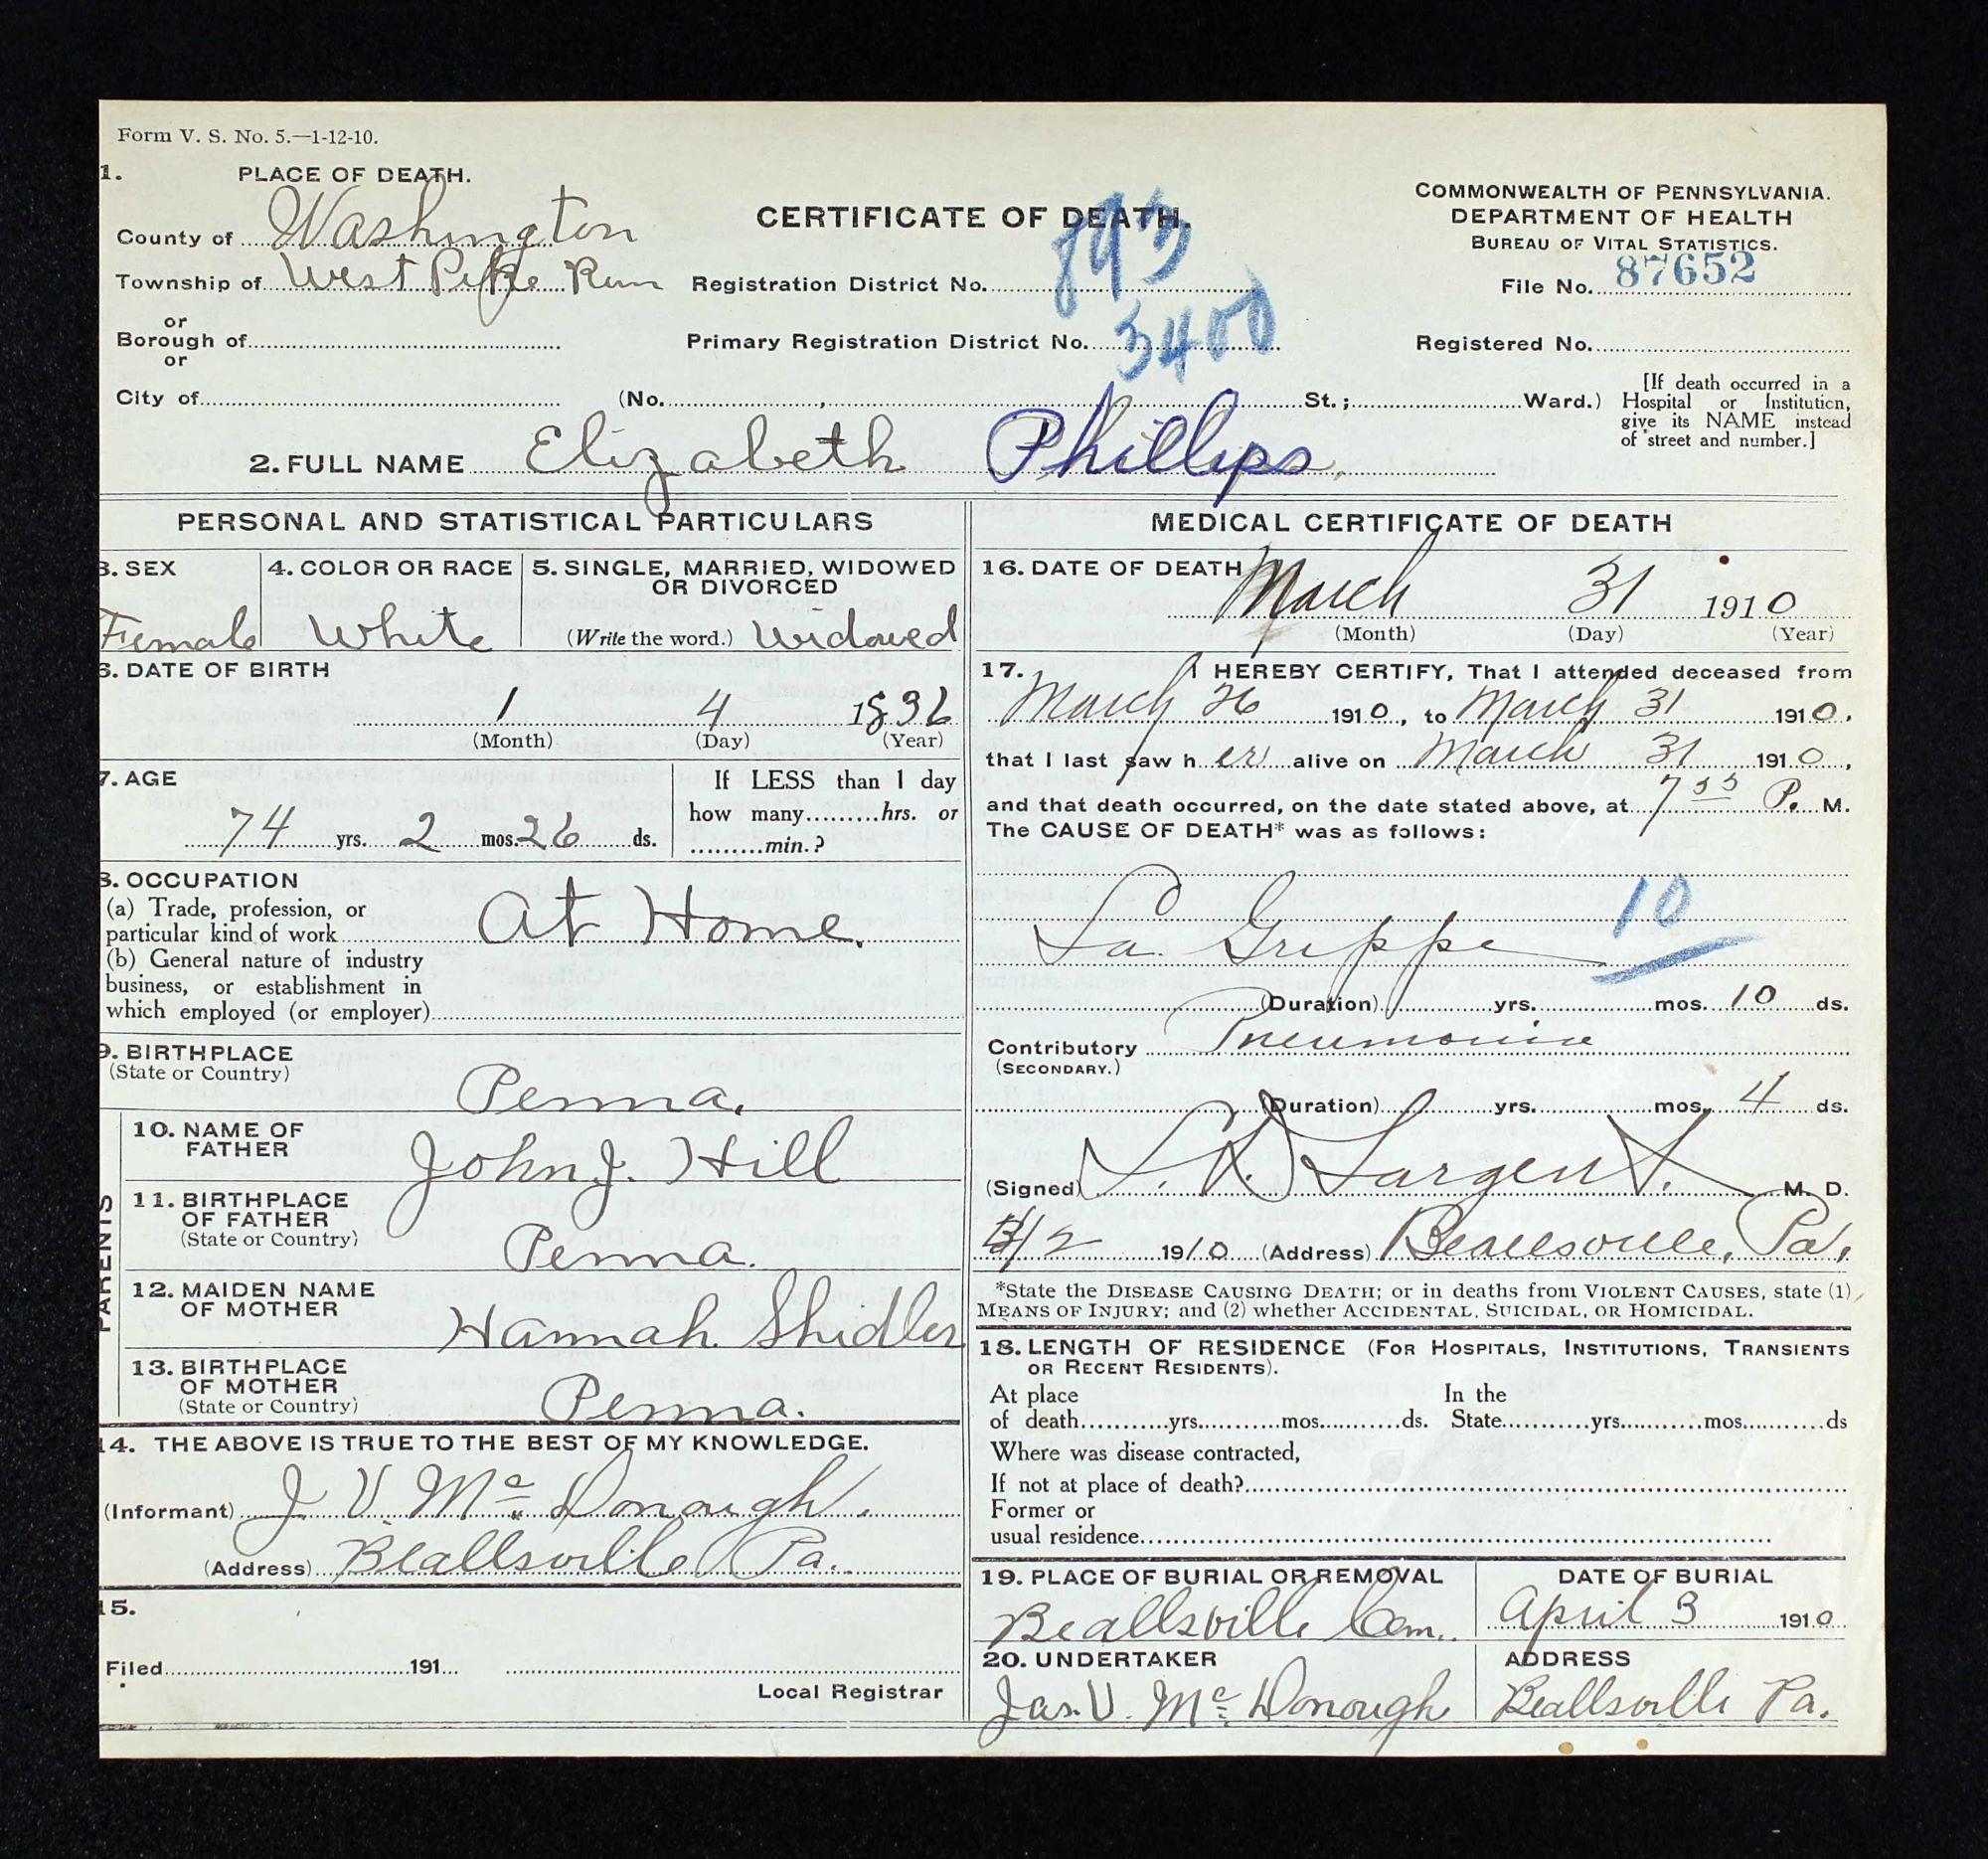 Form V. S. No. 5.—1-12-10.
1. PLACE OF DEATH.
County of Washington
Township of West Pike Run
or
Borough of
or
City of
CERTIFICATE OF DEATH.
Registration District No. 893
Primary Registration District No. 3400
(No. , St.; Ward.)
COMMONWEALTH OF PENNSYLVANIA.
DEPARTMENT OF HEALTH
BUREAU OF VITAL STATISTICS.
File No. 87652
Registered No.
[If death occurred in a
Hospital or Institution,
give its NAME instead
of street and number.]
2. FULL NAME Elizabeth Phillips.
PERSONAL AND STATISTICAL PARTICULARS
3. SEX
Female
4. COLOR OR RACE
White
5. SINGLE, MARRIED, WIDOWED
OR DIVORCED
(Write the word.) Widowed
6. DATE OF BIRTH
1 4 1836
(Month) (Day) (Year)
7. AGE
74 yrs. 2 mos. 26 ds.
If LESS than 1 day
how many hrs. or
min.?
8. OCCUPATION
(a) Trade, profession, or
particular kind of work At Home.
(b) General nature of industry
business, or establishment in
which employed (or employer)
9. BIRTHPLACE
(State or Country)
Penna.
PARENTS
10. NAME OF
FATHER
John J. Hill
11. BIRTHPLACE
OF FATHER
(State or Country)
Penna.
12. MAIDEN NAME
OF MOTHER
Hannah Shidler
13. BIRTHPLACE
OF MOTHER
(State or Country)
Penna.
14. THE ABOVE IS TRUE TO THE BEST OF MY KNOWLEDGE.
(Informant) J V. Mc Donough.
(Address) Beallsville Pa.
15.
Filed 191
Local Registrar
MEDICAL CERTIFICATE OF DEATH
16. DATE OF DEATH
March 31 1910
(Month) (Day) (Year)
17. I HEREBY CERTIFY, That I attended deceased from
March 26 1910, to March 31 1910.
that I last saw her alive on March 31 1910,
and that death occurred, on the date stated above, at 7 55 P. M.
The CAUSE OF DEATH* was as follows:
10
La. Grippe
(Duration) yrs. mos. 10 ds.
Contributory Pneumonia
(SECONDARY.)
(Duration) yrs. mos. 4 ds.
(Signed) Sargent. M. D.
/2 1910 (Address) Beallsville, Pa.
*State the DISEASE CAUSING DEATH; or in deaths from VIOLENT CAUSES, state (1)
MEANS OF INJURY; and (2) whether ACCIDENTAL, SUICIDAL, OR HOMICIDAL.
18. LENGTH OF RESIDENCE (FOR HOSPITALS, INSTITUTIONS, TRANSIENTS
OR RECENT RESIDENTS).
At place In the
of death yrs. mos. ds. State yrs. mos. ds
Where was disease contracted,
If not at place of death?
Former or
usual residence
19. PLACE OF BURIAL OR REMOVAL
Beallsville Cem.
DATE OF BURIAL
April 3 1910
20. UNDERTAKER
Jas. V. Mc Donough
ADDRESS
Beallsville Pa.